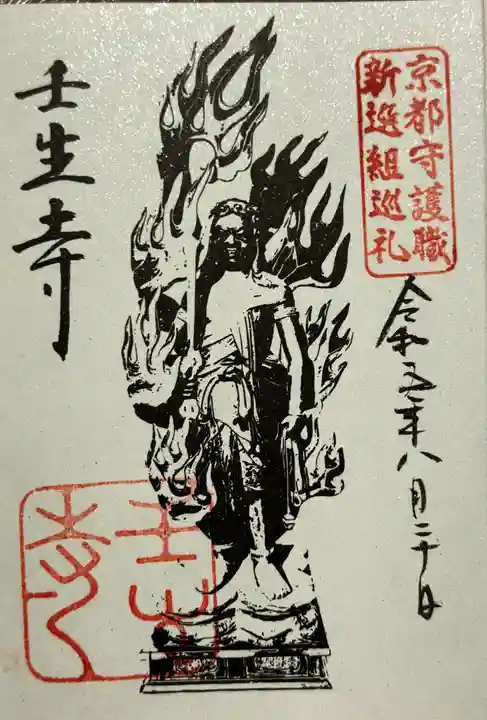 京都守護職
新選組巡礼
令和五年八月二十日
壬生寺